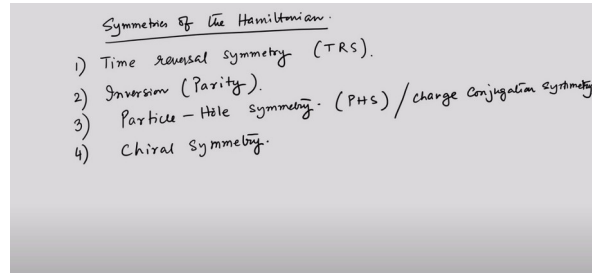 Symmetries of the Hamiltonian.
1) Time reversal symmetry (TRS).
2) Inversion (Parity).
3) Particle-Hole symmetry. (PHS) / charge conjugation symmetry
4) Chiral Symmetry.